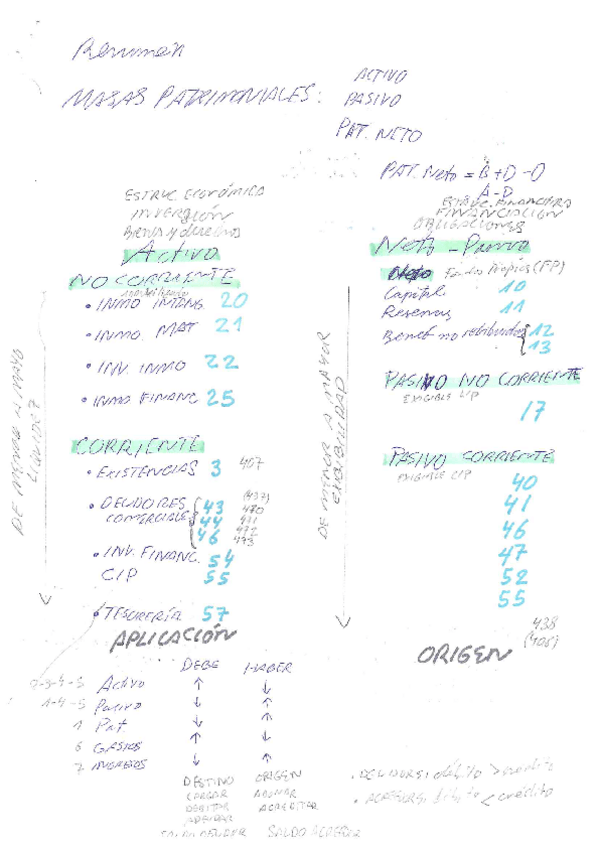 Resumen
MASAS PATRIMONIALES:
ACTIVO
PASIVO
PAT. NETO
PAT. Neto = B+D-O
A-D
ESTRUC. ECONÓMICA
INVERSIÓN
Bienes y derechos
Activo
NO CORRIENTE
• INMO INTANG. 20
• INMO. MAT 21
• INV. INMO 22
• INMO FINANC 25
CORRIENTE
• EXISTENCIAS 3 407
• DEUDORES COMERCIALES
43 (437)
44 470
46 471
472
473
• INV. FINANC. 54
C/P 55
• TESORERÍA 57
APLICACIÓN
DE MENOR A MAYO
LIQUIDEZ
ESTRUC. FINANCIERA
FINANCIACION
OBLIGACIONES
Neto - Pasivo
Fondos Propios (FP)
Capital 10
Reservas 11
Benef no retribuidos 12
13
PASIVO NO CORRIENTE
EXIGIBLE L/P
17
PASIVO CORRIENTE
EXIGIBLE C/P
40
41
46
47
52
55
438
ORIGEN
DE MENOR A MAYOR
EXIGIBILIDAD
DEBE HABER
2-3-4-5 Activo ↑ ↓
1-4-5 Pasivo ↓ ↑
1 Pat ↓ ↑
6 GASTOS ↑ ↓
7 INGRESOS ↓ ↑
DESTINO ORIGEN
CARGAR ABONAR
DEBITAR ACREDITAR
ADEUDAR
SALDO DEUDOR SALDO ACREEDOR
débito >
< crédito